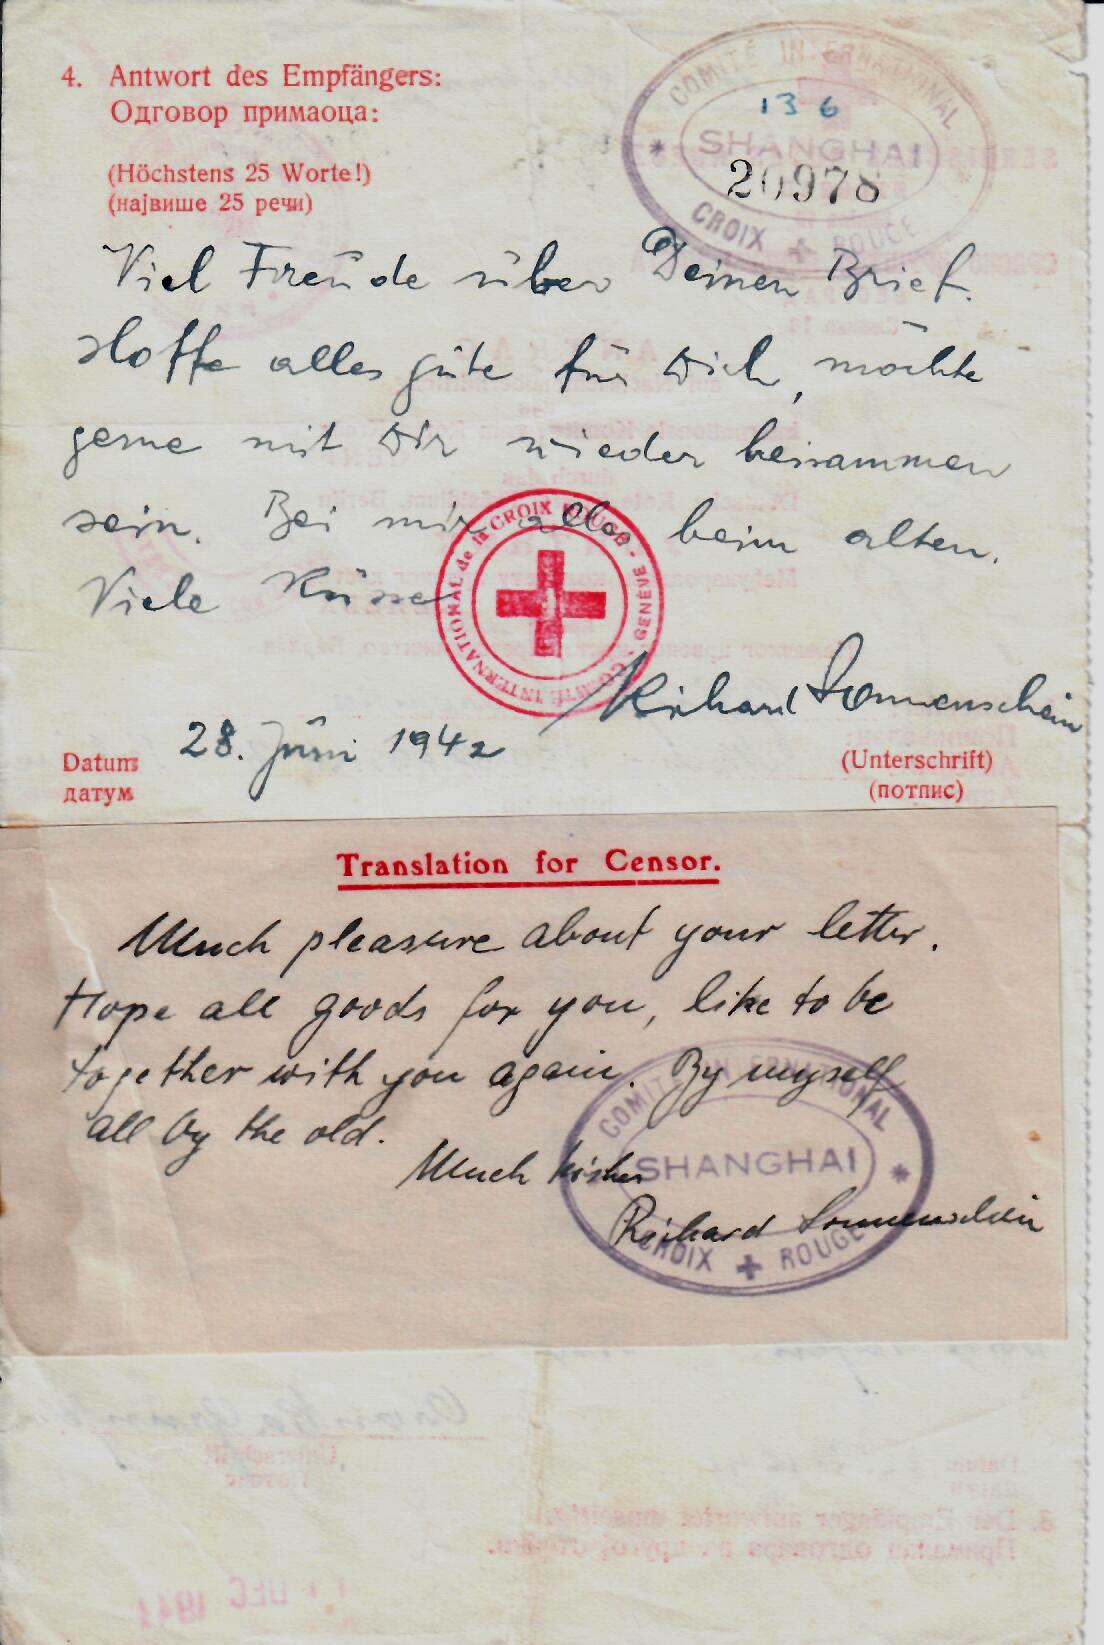 4. Antwort des Empfängers:
Одговор примаоца:
(Höchstens 25 Worte!)
(највише 25 речи)
COMITÉ INTERNATIONAL
136
SHANGHAI
20978
CROIX ROUGE
Viel Freude über Deinen Brief.
Hoffe alles gute für Dich, möchte
gerne mit Dir wieder beisammen
sein. Bei mir alles beim alten.
Viele Küsse
COMITÉ INTERNATIONAL de la CROIX ROUGE - GENÈVE
Richard Sonnenschein
28. Juni 1942
Datum
датум
(Unterschrift)
(потпис)
Translation for Censor.
Much pleasure about your letter.
Hope all goods for you, like to be
together with you again. By myself
all by the old.
Much kishes
Richard Sonnenschein
COMITÉ INTERNATIONAL
SHANGHAI
CROIX ROUGE
DEC 1941